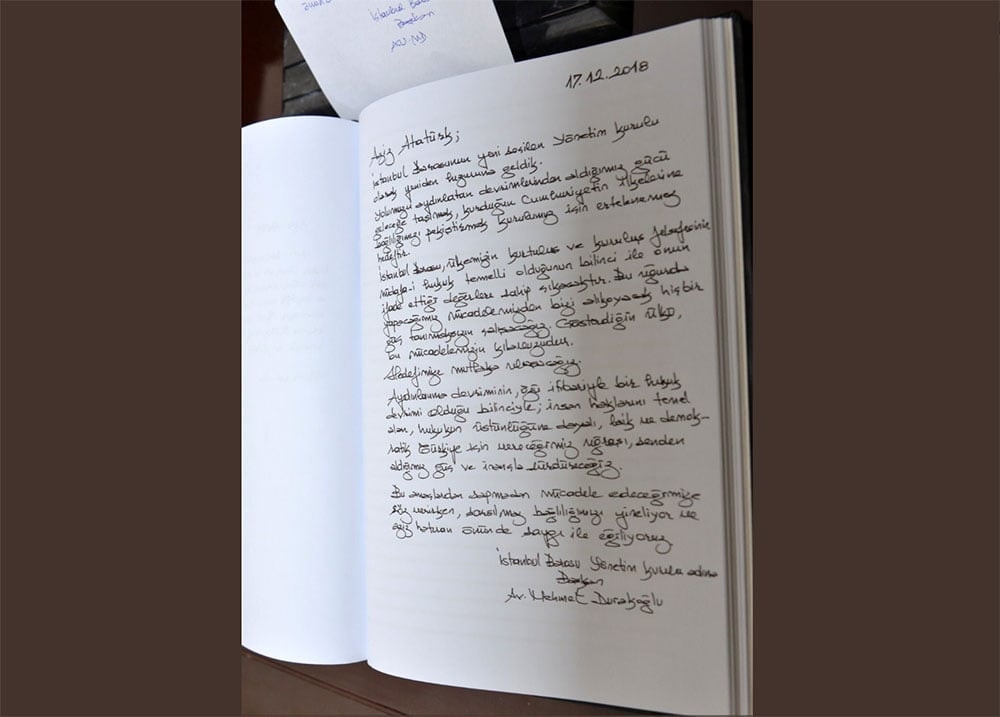 İstanbul Baro
Başkanı
17.12.2018
Aziz Atatürk;
İstanbul Barosunun yeni seçilen Yönetim Kurulu
olarak yeniden huzuruna geldik.
Yolumuzu aydınlatan devrimlerinden aldığımız gücü
geleceğe taşımak, kurduğun Cumhuriyetin ilkelerine
bağlılığımızı pekiştirmek kurulumuz için ertelenemez
hedeftir.
İstanbul Barosu, ülkemizin kurtuluş ve kuruluş felsefesinin
müdafa-i hukuk temelli olduğunun bilinci ile onun
ifade ettiği değerlere sahip çıkacaktır. Bu uğurda
yapacağımız mücadelemizden bizi alıkoyacak hiçbir
güç tanımaksızın çalışacağız. Gösterdiğin ülkü,
bu mücadelemizin kılavuzudur.
Hedefimize mutlaka varacağız.
Aydınlanma devriminin, özü itibariyle bir hukuk
devrimi olduğu bilinciyle; insan haklarını temel
alan, hukukun üstünlüğüne dayalı, laik ve demok-
ratik Türkiye için vereceğimiz uğraşı, senden
aldığımız güç ve inançla sürdüreceğiz.
Bu amaçlardan sapmadan mücadele edeceğimize
söz verirken, sarsılmaz bağlılığımızı yineliyor ve
aziz hatıran önünde saygı ile eğiliyoruz
İstanbul Barosu Yönetim Kurulu adına
Başkan
Av. Mehmet Durakoğlu